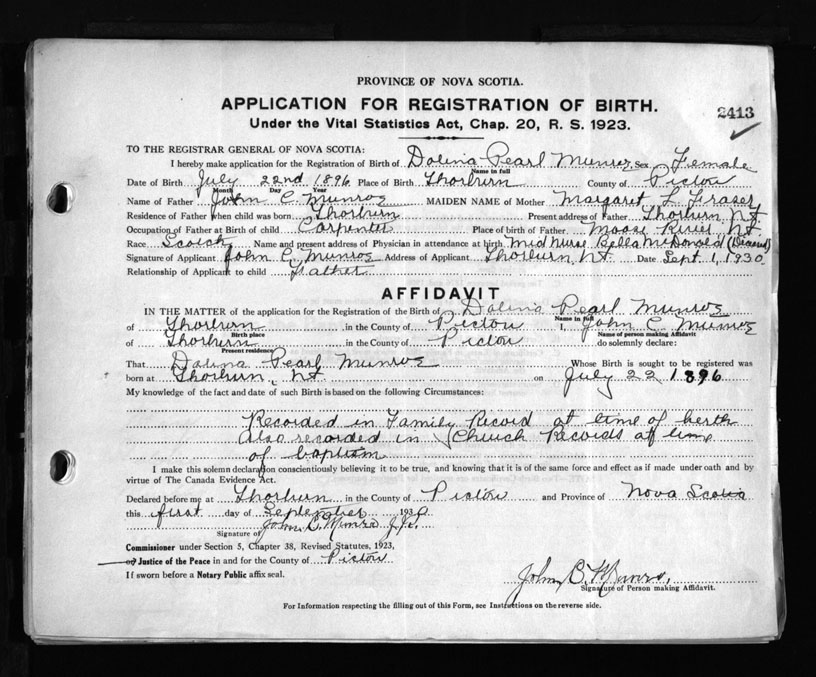 PROVINCE OF NOVA SCOTIA.
APPLICATION FOR REGISTRATION OF BIRTH.
2413
Under the Vital Statistics Act, Chap. 20, R. S. 1923.
TO THE REGISTRAR GENERAL OF NOVA SCOTIA:
I hereby make application for the Registration of Birth of Dolina Pearl Munroe Sex Female
Name in full
Date of Birth July 22nd 1896 Place of Birth Thorburn County of Pictou
Month Day Year
Name of Father John C Munroe MAIDEN NAME of Mother Margaret L Fraser
Residence of Father when child was born Thorburn Present address of Father Thorburn N.S.
Occupation of Father at Birth of child Carpenter Place of birth of Father Moose River N.S.
Race Scotch Name and present address of Physician in attendance at birth Mid Nurse Bella McDonald (Deceased)
Signature of Applicant John C. Munroe Address of Applicant Thorburn, N.S. Date Sept. 1, 1930.
Relationship of Applicant to child Father
AFFIDAVIT
IN THE MATTER of the application for the Registration of the Birth of Dolina Pearl Munroe
Name in full
of Thorburn in the County of Pictou I, John C Munroe
Birth place Name of person making Affidavit
of Thorburn in the County of Pictou do solemnly declare:
Present residence
That Dolina Pearl Munroe Whose Birth is sought to be registered was
born at Thorburn, N.S. on July 22 1896
My knowledge of the fact and date of such Birth is based on the following Circumstances:
Recorded in Family Record at time of berth
Also recorded in Church Records at time
of baptism
I make this solemn declaration conscientiously believing it to be true, and knowing that it is of the same force and effect as if made under oath and by
virtue of The Canada Evidence Act.
Declared before me at Thorburn in the County of Pictou and Province of Nova Scotia
this first day of September 1930
John B. Munro J.P.
Signature of
Commissioner under Section 5, Chapter 38, Revised Statutes, 1923,
or Justice of the Peace in and for the County of Pictou
If sworn before a Notary Public affix seal.
John B. Munro,
Signature of Person making Affidavit.
For Information respecting the filling out of this Form, see Instructions on the reverse side.